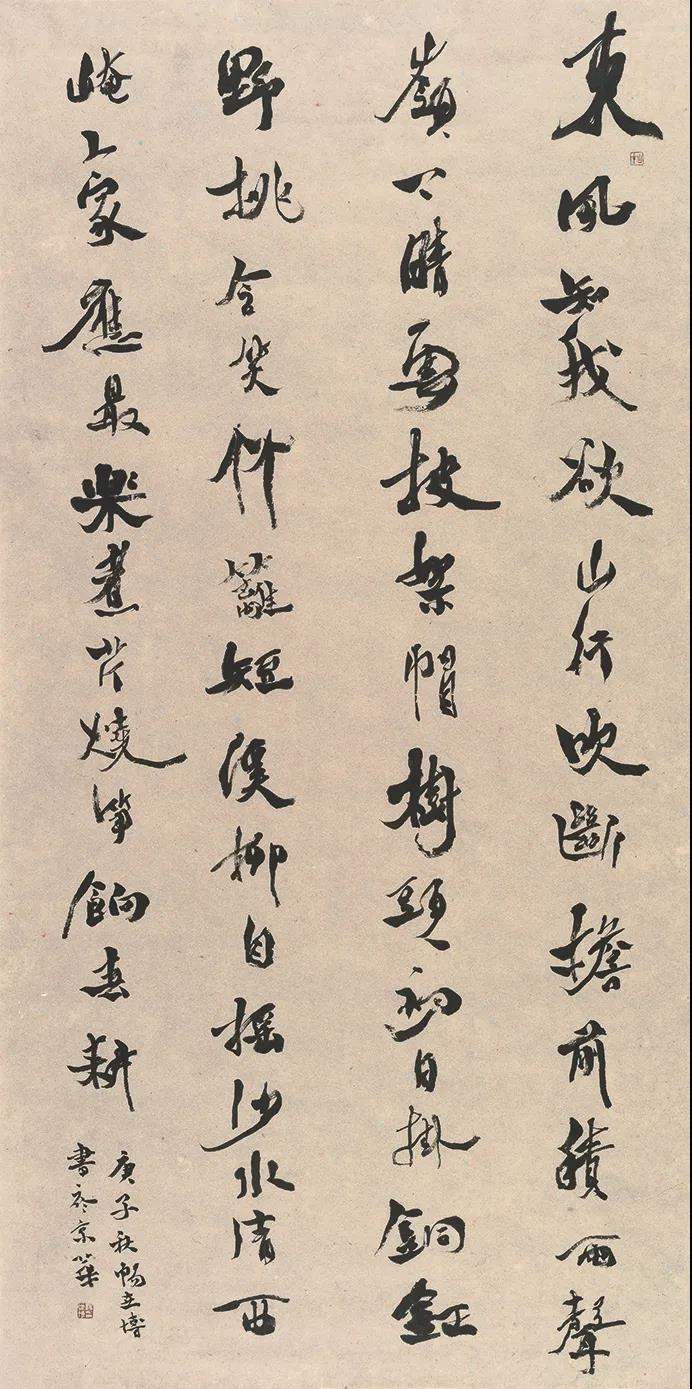 東風知我欲山行吹斷檐前積雨聲
嶺上晴雲披絮帽樹頭初日掛銅鉦
野桃含笑竹籬短溪柳自搖沙水清西
崦人家應最樂煮芹燒筍餉春耕
庚子秋立博
書於京華